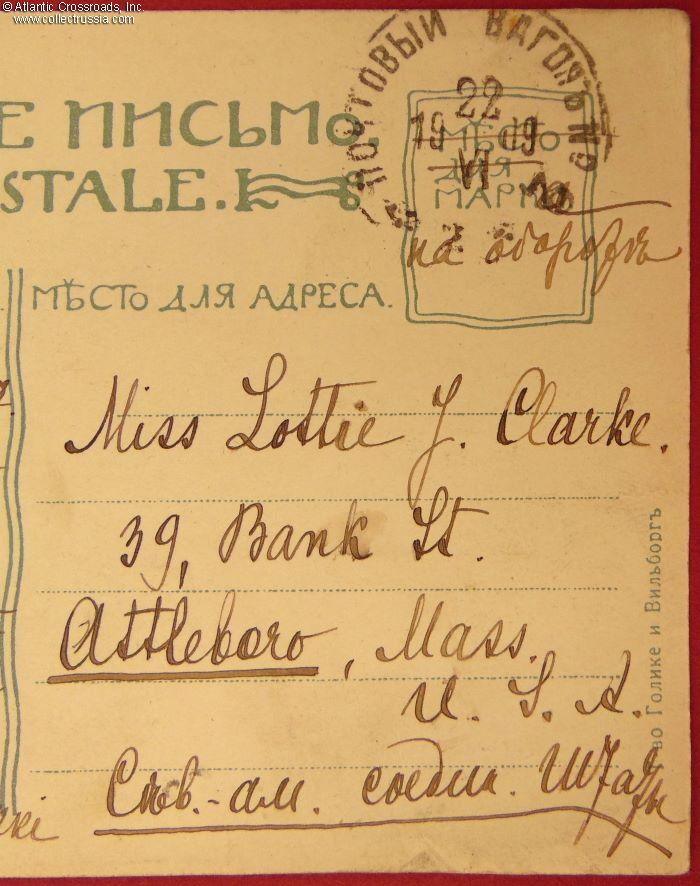 © Atlantic Crossroads, Inc.
www.collectrussia.com
ПОЧТОВЫЙ ВАГОНЪ №
22
19 19
VI
Е ПИСЬМО
STALE.
МѢСТО
ДЛЯ
МАРКИ
на оборотѣ
МѢСТО ДЛЯ АДРЕСА.
Miss Lottie J. Clarke.
39, Bank St.
Attleboro, Mass.
U. S. A.
Сѣв.-ам. соедин. Штаты
во Голике и Вильборгъ